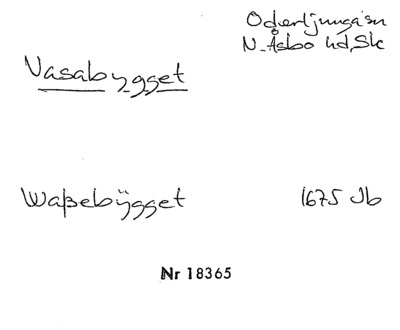 Oderljunga sn
N. Åsbo hd, Sk
Vasabygget
Waßebÿgget 1675 Jb
Nr 18365